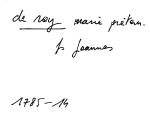 de roy marie préten.
fs Joannes
1785-14